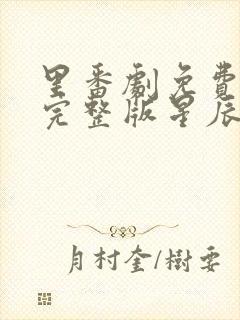 里番劇免費
完整版星辰
月村奎/樹要